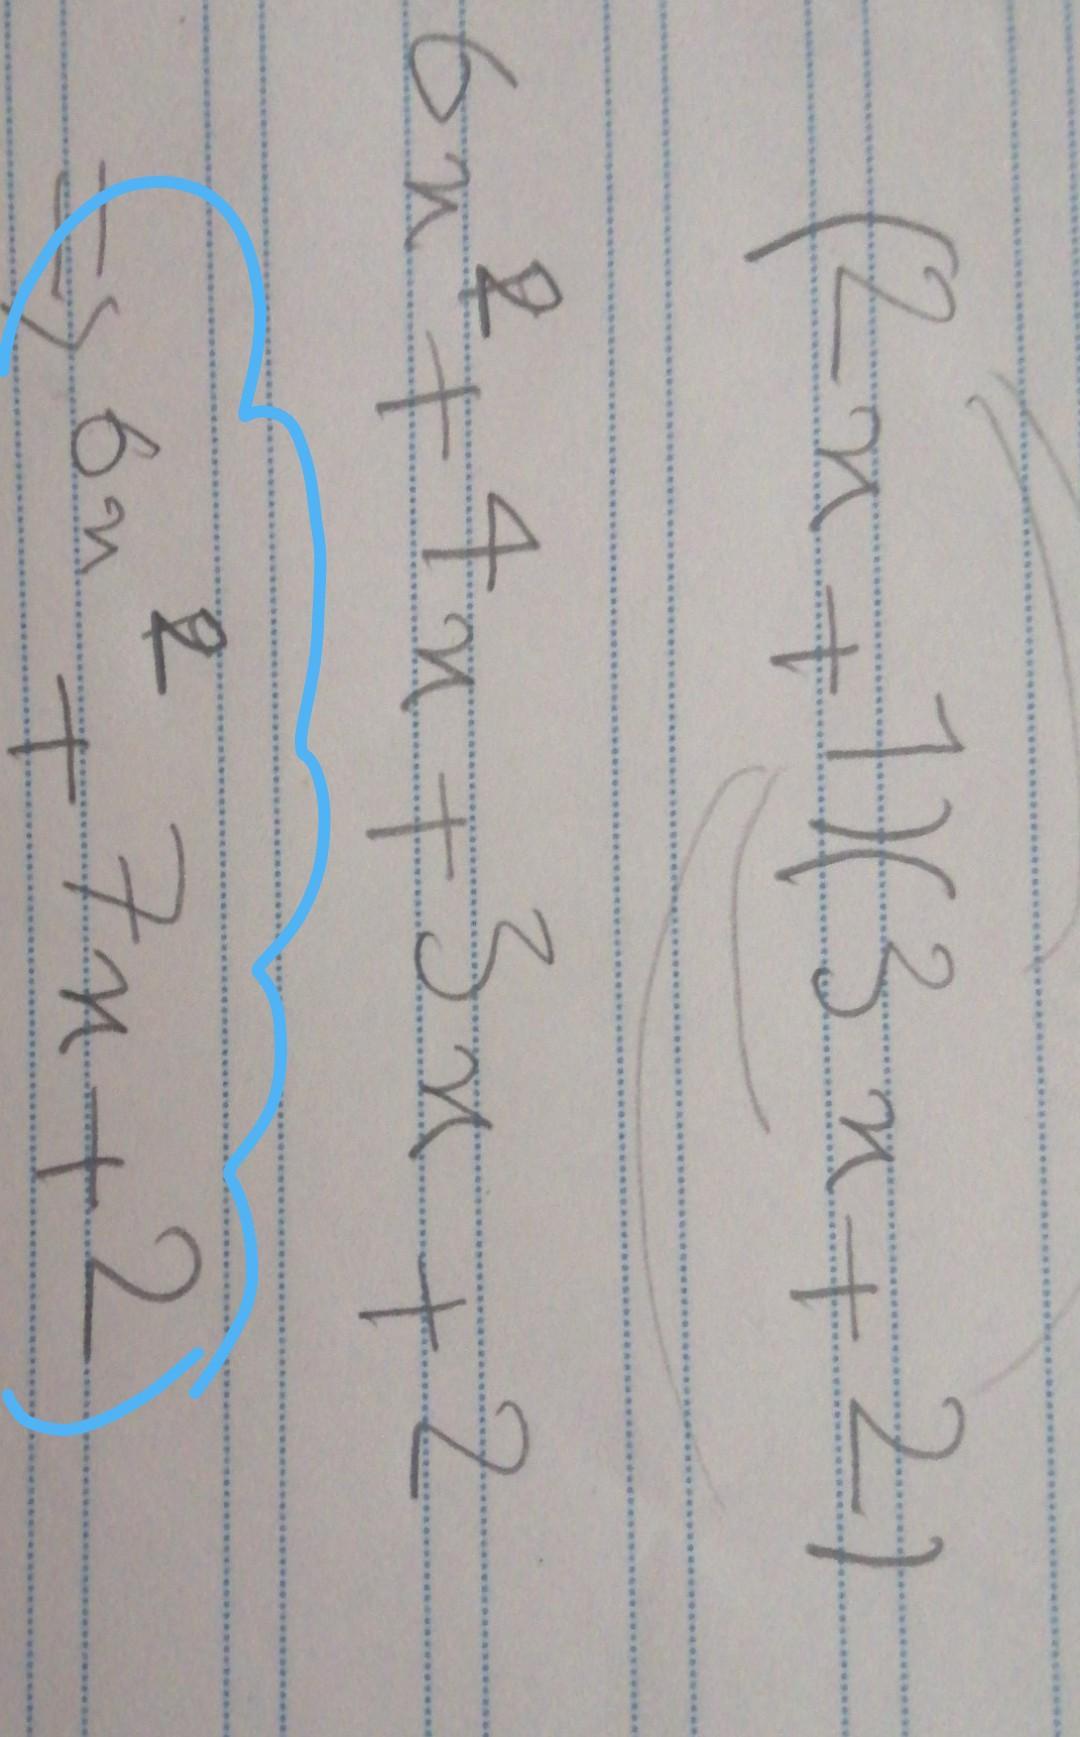 (2x+1)(3x+2)
6x²+4x+3x+2
=> 6x²+7x+2